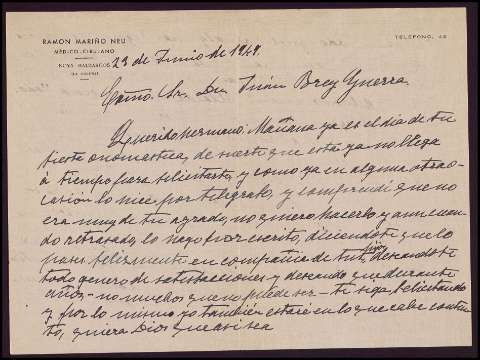 RAMON MARIÑO NEU
MÉDICO-CIRUJANO
TELÉFONO, 42
23 de Junio de 1949
Excmo. Sr. Dn. Juán Brey Guerra.
Querido hermano: Mañana ya es el dia de tu
fiesta onomastica, de suerte que esta ya no llega
á tiempo para felicitarte, y como ya en alguna otra oc-
casión lo hice por telégrafo, y comprendí que no
era muy de tu agrado, no quiero hacerlo y aun cuan-
do retrasado, lo hago por escrito, diciendote que lo
pases felizmente en compañia de tus hijos, deseandote
todo genero de satisfacciones y deseando que durante
años - no muchos que no puede ser - te siga felicitando
y por lo mismo yo tambien estaré en lo que cabe conten-
to, quiera Dios que asi sea